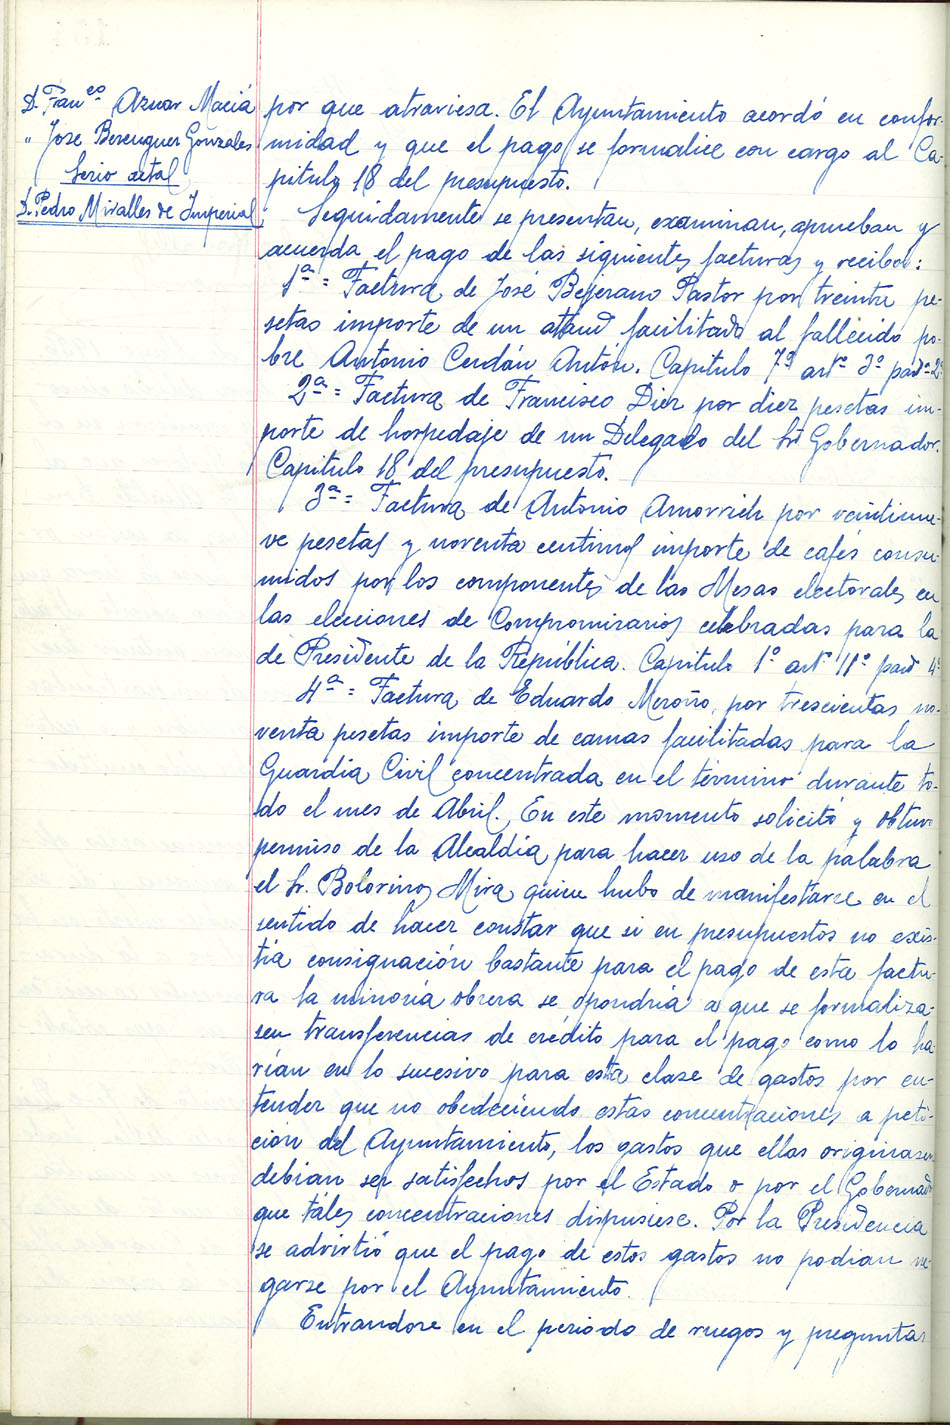 D. Fran^co Aznar Maciá
" Jose Berenguer Gonzales
Serio actal
D. Pedro Miralles de Imperial
por que atraviesa. El Ayuntamiento acordó en confor-
midad y que el pago se formalice con cargo al Ca-
pitulo 18 del presupuesto.
Seguidamente se presentan, examinan, aprueban y
acuerda el pago de las siguientes facturas y recibos:
1ª = Factura de José Bejerano Pastor por treinta pe-
setas importe de un ataud facilitado al fallecido po-
bre Antonio Cerdán Antón. Capitulo 7º artº 3º pardª 2ª
2ª = Factura de Francisco Diez por diez pesetas im-
porte de hospedaje de un Delegado del Sr. Gobernador.
Capitulo 18 del presupuesto.
3ª = Factura de Antonio Amorrich por veintinue-
ve pesetas y noventa centimos importe de cafés consu-
midos por los componentes de las Mesas electorales en
las elecciones de Compromisarios celebradas para la
de Presidente de la República. Capitulo 1º artº 11º pard 4ª
4ª = Factura de Eduardo Meroño, por trescientas no-
venta pesetas importe de camas facilitadas para la
Guardia Civil concentrada en el término durante to-
do el mes de Abril. En este momento solicitó y obtuvo
permiso de la Alcaldia para hacer uso de la palabra
el Sr. Bolorinos Mira quien hubo de manifestarce en el
sentido de hacer constar que si en presupuestos no exis-
tia consignación bastante para el pago de esta factu-
ra la minoria obrera se opondria a que se formaliza-
sen transferencias de crédito para el pago como lo ha-
rían en lo sucesivo para esta clase de gastos por en-
tender que no obedeciendo estas concentraciones a peti-
ción del Ayuntamiento, los gastos que ellas originasen
debian ser satisfechos por el Estado o por el Gobernador
que táles concentraciones dispusiese. Por la Presidencia
se advirtió que el pago de estos gastos no podian ne-
garse por el Ayuntamiento.
Entrandose en el periodo de ruegos y preguntas